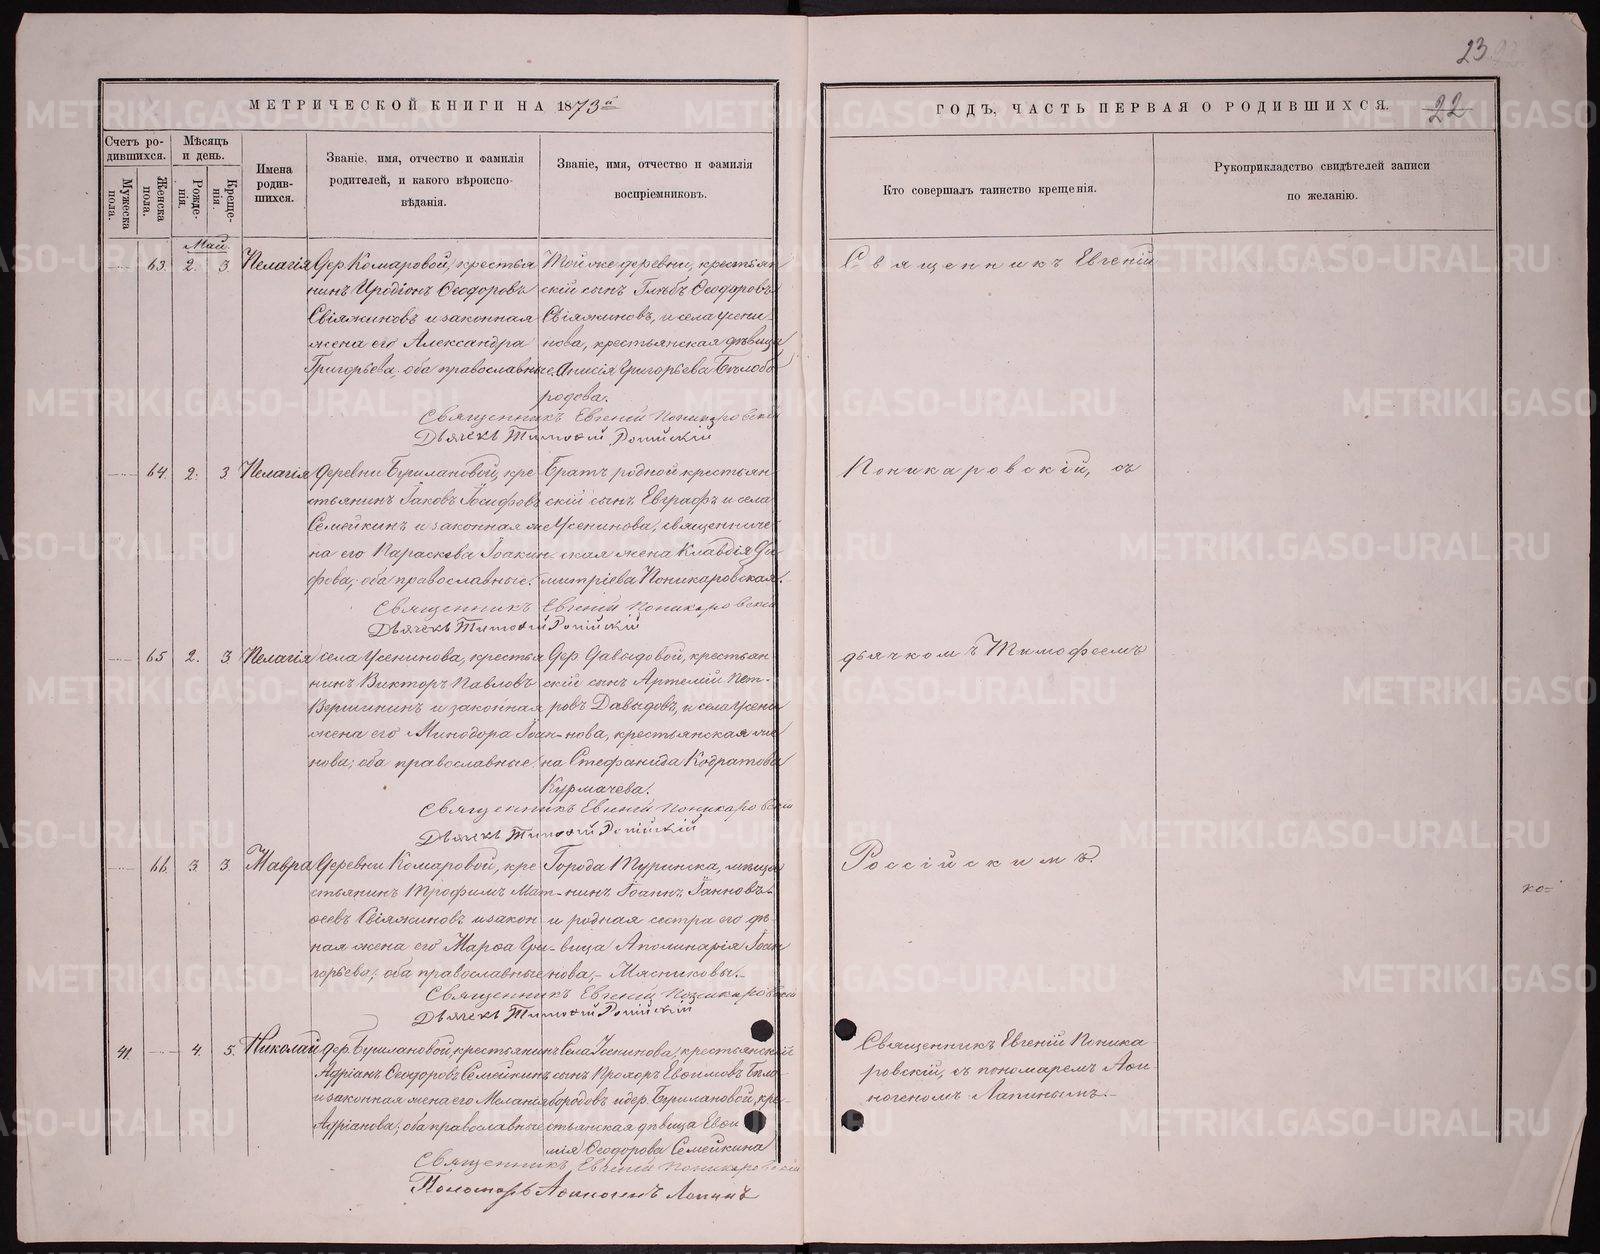 23
МЕТРИЧЕСКОЙ КНИГИ НА 1873й
ГОДЪ, ЧАСТЬ ПЕРВАЯ О РОДИВШИХСЯ. 22
Счетъ ро-
дившихся.
Мужеска
пола.
Женска
пола.
Мѣсяцъ
и день.
Рожде-
нія.
Креще-
нія.
Имена
родив-
шихся.
Званіе, имя, отчество и фамилія
родителей, и какого вѣроиспо-
вѣданія.
Званіе, имя, отчество и фамилія
воспріемниковъ.
Кто совершалъ таинство крещенія.
Рукоприкладство свидѣтелей записи
по желанію.
Май.
63. 2. 3. Пелагія
Дер Комаровой, крестья
нинъ Иродіонъ Ѳеодоровъ
Свіяжиновъ и законная
жена его Александра
Григорьева, оба православные.
Той же деревни, крестьян
скій сынъ Глѣбъ Ѳеодоровъ
Свіяжиновъ, и села Усени-
нова, крестьянская дѣвица
Анисія Григорьева Бѣлобо
родова.
Священникъ Евгеній Поникаровскій
Дьячекъ Тимоѳій Россійскій
Священникъ Евгеній
64. 2. 3 Пелагія
деревни Бушлановой, кре
стьянинъ Іаковъ Іосифовъ
Семейкинъ и законная же
на его Параскева Іоаки-
фова; оба православные.
Братъ родной крестьян
скій сынъ Евграфъ и села
Усенинова, священниче-
ская жена Клавдія Ди-
митріева Поникаровская.
Священникъ Евгеній Поникаровскій
Дьячекъ Тимоѳій Россійскій
Поникаровскій, съ
65 2. 3 Пелагія
села Усенинова, крестья
нинъ Викторъ Павловъ
Вершининъ и законная
жена его Минодора Іоан-
нова; оба православные.
Дер Давыдовой, крестьян
скій сынъ Артемій Пет-
ровъ Давыдовъ, и села Усени
нова, крестьянская же
на Стефанида Кодратова
Курмачева.
Священникъ Евгеній Поникаровскій
Дьячекъ Тимоѳій Россійскій
дьячкомъ Тимофеемъ
66. 3 3. Мавра
Деревни Комаровой, кре
стьянинъ Трофимъ Мат-
ѳеевъ Свіяжиновъ и закон
ная жена его Марѳа Гри-
горьева; оба православные
Города Туринска, мѣща
нинъ Іоаннъ Іанновъ
и родная сестра его дѣ-
вица Аполинарія Іоан
нова,- Мясниковы.-
Священникъ Евгеній Поникаровскій
Дьячекъ Тимоѳій Россійскій
Россійскимъ.
ко=
41. 4. 5. Николай
Дер. Бушлановой, крестьянинъ
Адріанъ Ѳеодоровъ Семейкинъ
и законная жена его Меланія
Адріанова; оба православные
Села Усенинова, крестьянскій
сынъ Прохоръ Евѳимовъ Бѣло-
бородовъ и дер. Бушлановой, кре-
стьянская дѣвица Евѳи
мія Ѳеодорова Семейкина
Священникъ Евгеній Поникаровскій
Пономарь Аѳиногенъ Лапинъ
Священникъ Евгеній Поника
ровскій, съ пономаремъ Аѳи
ногеномъ Лапинымъ.-